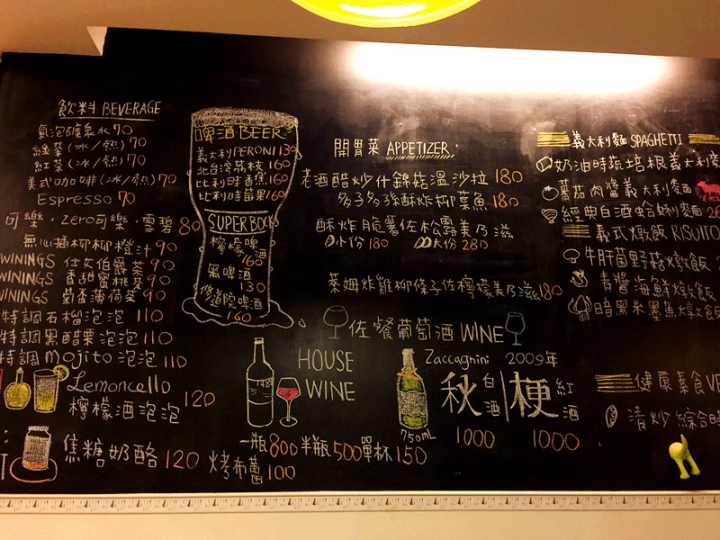 飲料 BEVERAGE
氣泡礦泉水 70
綠茶(冰/熱) 70
紅茶(冰/熱) 70
美式咖啡(冰/熱) 70
Espresso 70
可樂·Zero可樂·雪碧 80
柳橙汁 90
WININGS 仕女伯爵茶 90
WININGS 香甜蜜桃茶 90
WININGS 薄荷茶 90
特調石榴泡泡 110
特調黑醋栗泡泡 110
特調 Mojito 泡泡 110
Lemoncello
檸檬酒泡泡 120
焦糖奶酪 120
烤布蕾 100
啤酒 BEER
義大利PERONI 130
北台灣荔枝 160
比利時香蕉 160
比利時蘋果 160
SUPER BOCK
檸檬啤 160
黑啤酒 130
修道院啤酒 160
開胃菜 APPETIZER
老酒醋炒什錦菇溫沙拉 180
多多張酥炸柳葉魚 180
酥炸脆薯佐松露美乃滋
小份 180 大份 280
萊姆炸雞柳條子佐檸檬美乃滋 180
佐餐葡萄酒 WINE
HOUSE
WINE
一瓶 800 半瓶 500 單杯 150
Zaccagnini 2009年
秋 白酒 | 梗 紅酒
750mL
1000 1000
義大利麵 SPAGHETTI
奶油時蔬培根義大利
蕃茄肉醬義大利麵
經典白酒蛤蜊麵
義式燉飯 RISUTO
牛肝菌野菇燉飯
青醬海鮮燉飯
暗黑系墨魚燉飯
健康素食
清炒綜合時